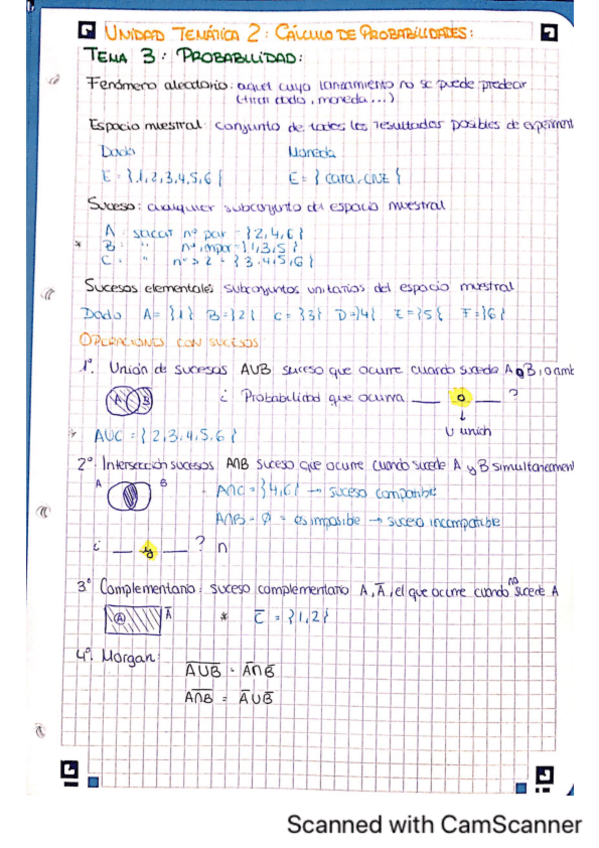 UNIDAD TEMÁTICA 2: CÁLCULO DE PROBABILIDADES:
TEMA 3: PROBABILIDAD:
Fenómeno aleatorio: aquel cuyo lanzamiento no se puede predecir
(tirar dado, moneda...)
Espacio muestral: conjunto de todos los resultados posibles de experiment
Dado Moneda
E = {1,2,3,4,5,6} E = {cara, cruz}
Suceso: cualquier subconjunto del espacio muestral
A: sacar nº par = {2,4,6}
* B: " nº impar = {1,3,5}
C: " nº > 2 = {3,4,5,6}
Sucesos elementales: subconjuntos unitarios del espacio muestral
Dado A = {1} B = {2} C = {3} D = {4} E = {5} F = {6}
OPERACIONES CON SUCESOS
1º. Unión de sucesos A∪B suceso que ocurre cuando sucede A o B, o amb
A B ¿ Probabilidad que ocurra ___ o ___ ?
↓
∪ unión
* A∪C = {2,3,4,5,6}
2º. Intersección sucesos A∩B suceso que ocurre cuando sucede A y B simultaneamen
A B · A∩C = {4,6} → suceso compatible
A∩B = ∅ = es imposible → suceso incompatible
¿ ___ y ___ ? ∩
3º Complementario: suceso complementario A, A̅, el que ocurre cuando no sucede A
A A̅ * C̅ = {1,2}
4º. Morgan:
A̅∪̅B̅ = A̅∩B̅
A̅∩̅B̅ = A̅∪B̅
Scanned with CamScanner